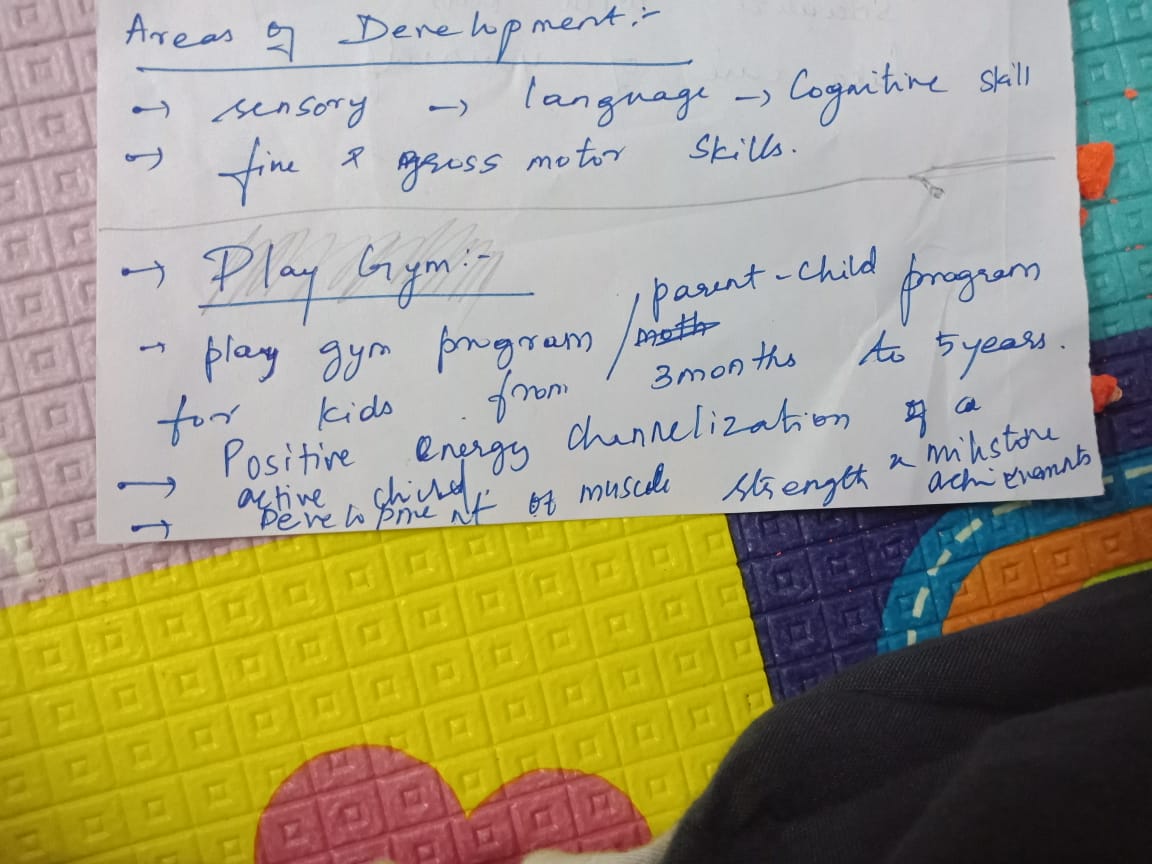 Areas of Development:-
→ sensory → language → Cognitive skill
→ fine & gross motor skills.
→ Play Gym:-
→ play gym program / parent-child program
for kids from 3months to 5years.
→ Positive energy channelization of a
active child.
→ Development of muscle strength & milstone achievemnts